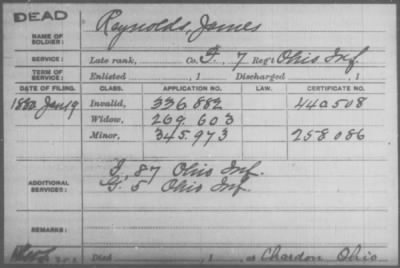 DEAD
Reynolds, James
NAME OF SOLDIER:
SERVICE: Late rank, Co. F, 7 Reg't Ohio Inf.
TERM OF SERVICE: Enlisted , 1 Discharged , 1
DATE OF FILING. CLASS. APPLICATION NO. LAW. CERTIFICATE NO.
1880 Jan 19 Invalid, 336 882 440508
Widow, 269 603
Minor, 345,973 258086
ADDITIONAL SERVICES: I, 87 Ohio Inf.
G. 5 Ohio Inf.
REMARKS:
Died , 1 , at Chardon Ohio